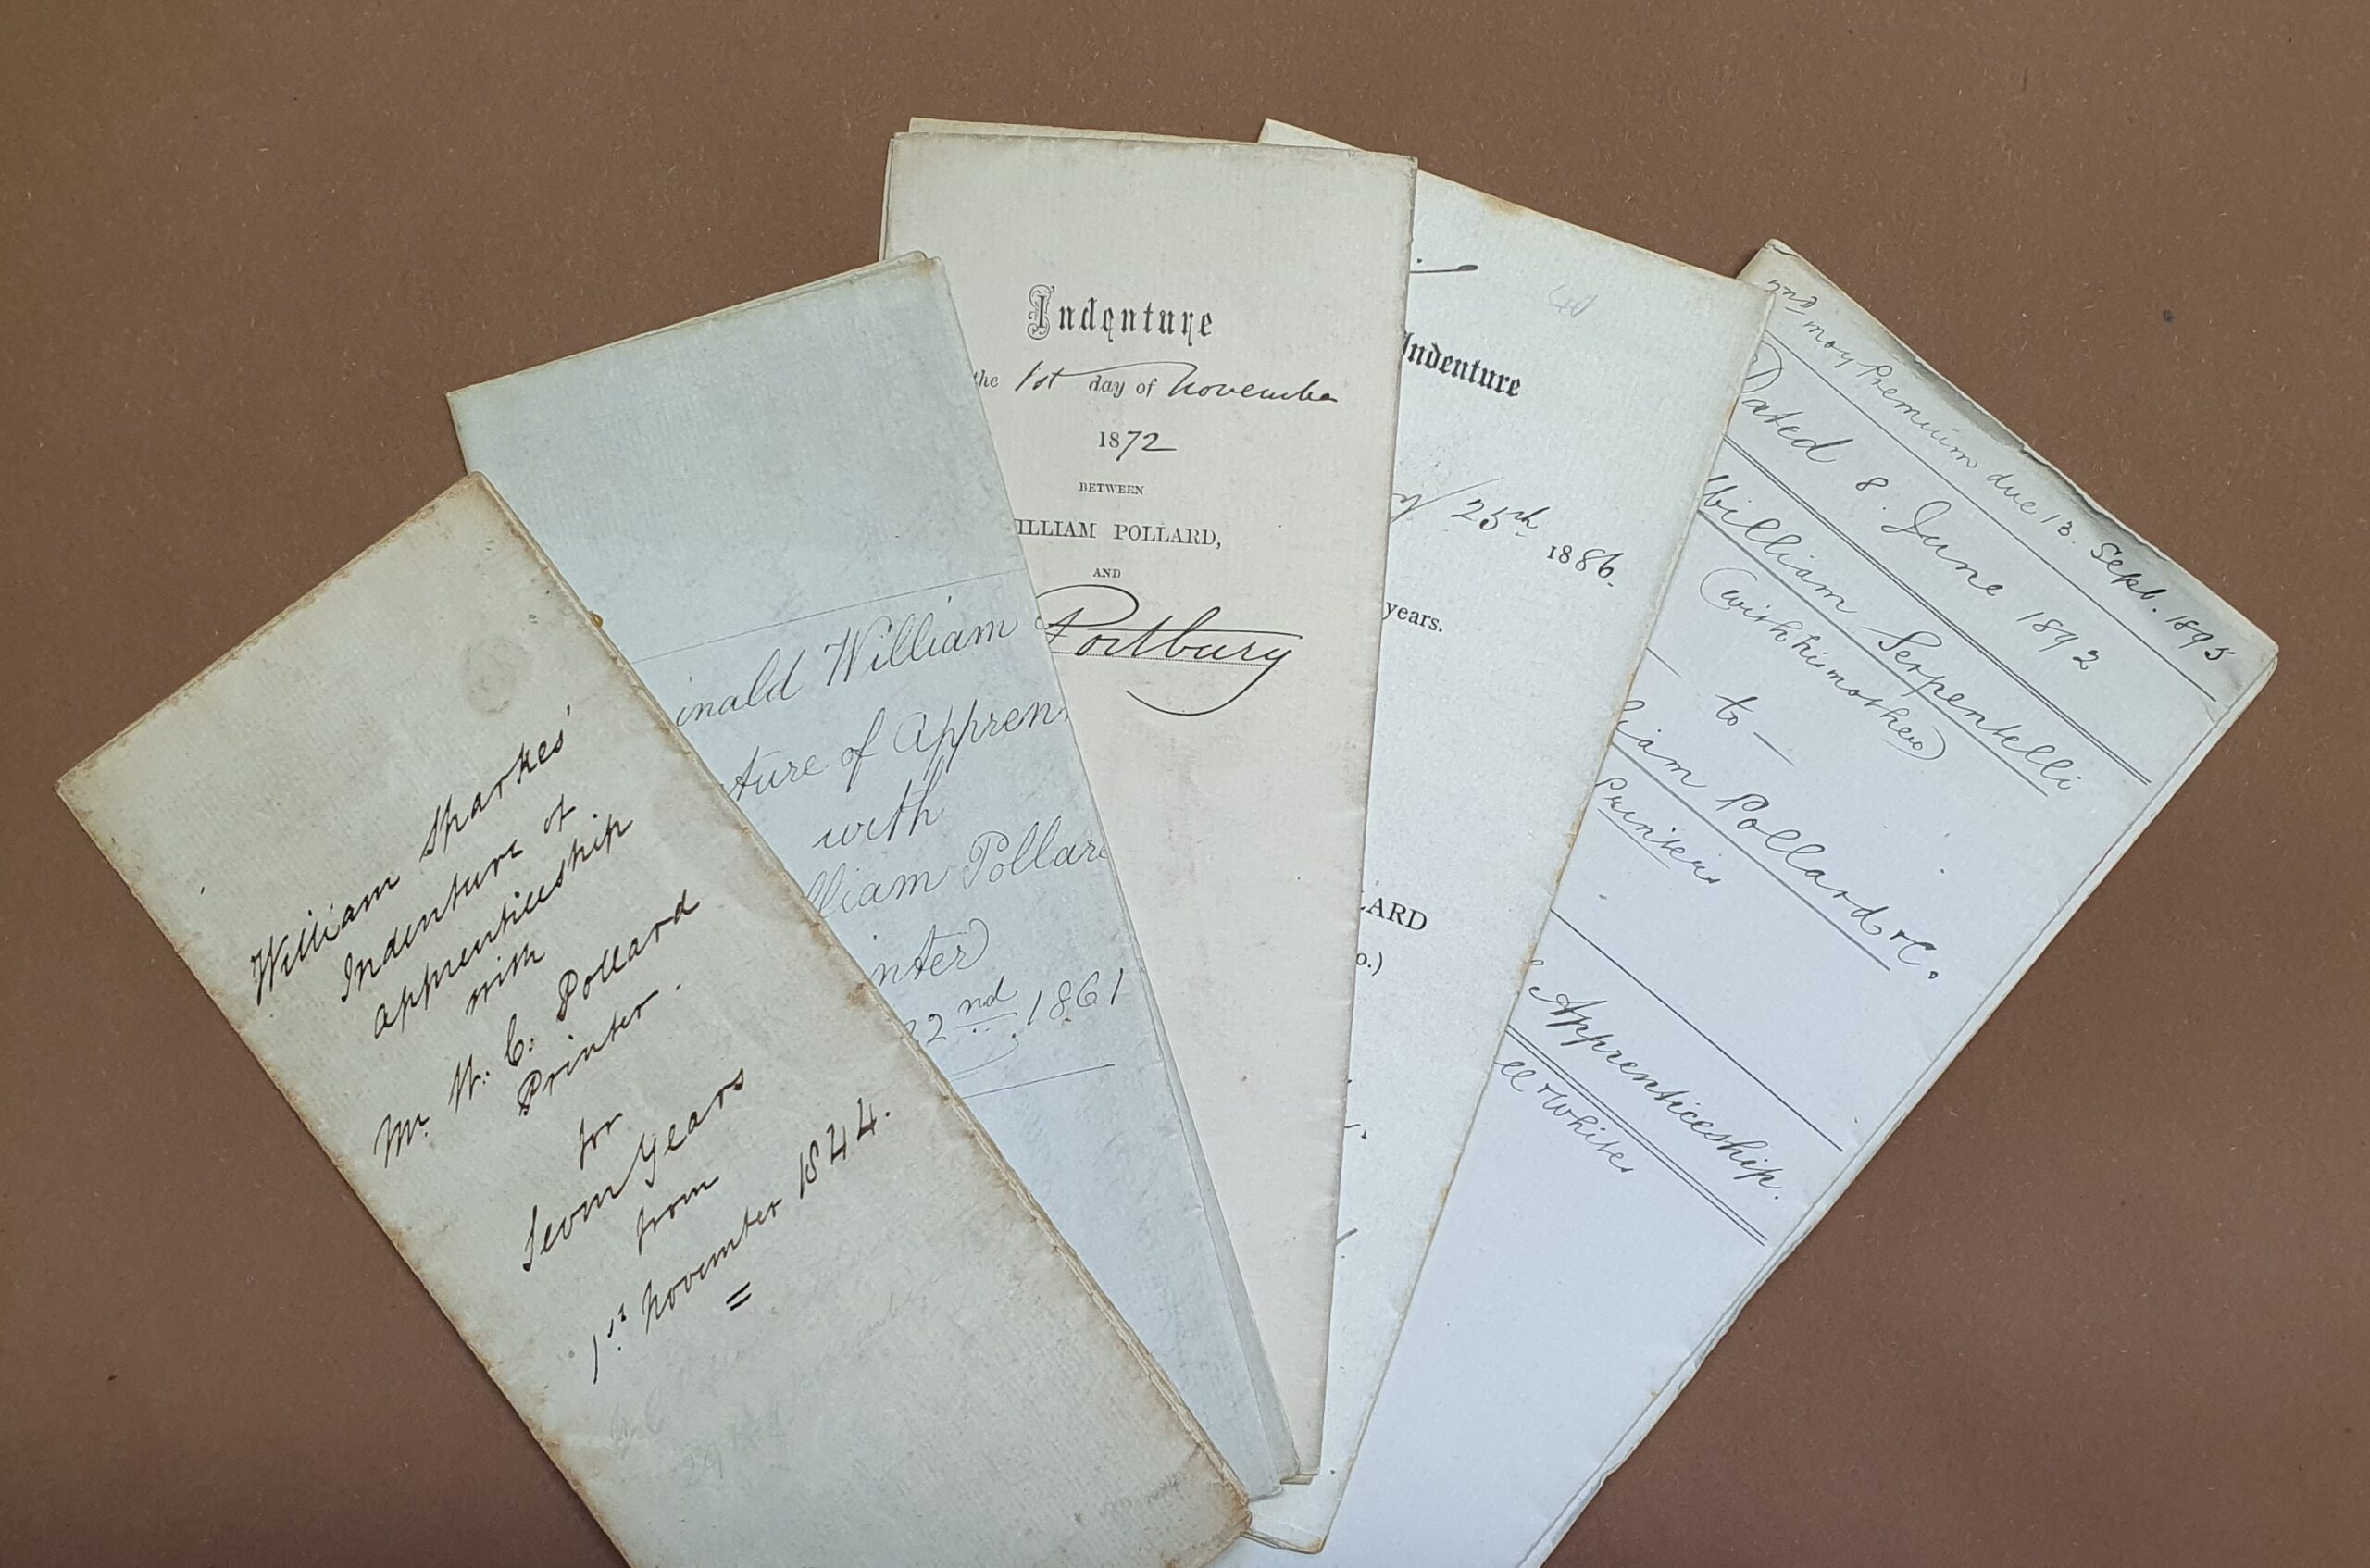 William Sparkes'
Indenture of
apprenticeship
with
Mr. W. C. Pollard
Printer.
for
Seven Years
from
1st November 1844.
=
inald William
ture of Appren
with
lliam Pollar
inter
22nd 1861
Indenture
the 1st day of November
1872
BETWEEN
ILLIAM POLLARD,
AND
Portbury
Indenture
25th 1886.
years.
LARD
o.)
2nd moy Premium due 13. Sept. 1895
Dated 8 June 1892
William Serpentelli
(with his mother)
to
liam Pollard & C.
Printers
Apprenticeship.
ll & White